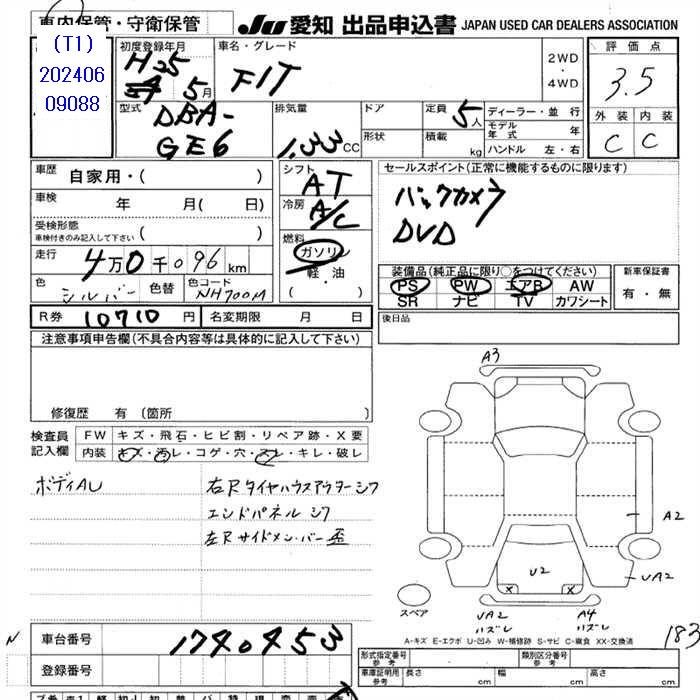 車内保管・守衛保管
JU 愛知 出品申込書 JAPAN USED CAR DEALERS ASSOCIATION
(T1)
202406
09088
初度登録年月
H25
5月
車名・グレード
FIT
2WD
・
4WD
評価点
3.5
外装 内装
C C
型式
DBA-
GE6
排気量
1.33 CC
ドア
形状
定員 5人
積載 kg
ディーラー・並行
モデル年式 年
ハンドル 左・右
車歴 自家用・( )
車検 年 月( 日)
受検形態
車検付きのみ記入して下さい ( )
走行 4万0千096km
色 シルバー 色替 色コード NH700M
シフト AT
冷房 A/C
燃料
ガソリン
軽油
・
( )
セールスポイント(正常に機能するものに限ります)
バックカメラ
DVD
装備品(純正品に限り○をつけてください)
PS PW エアB AW
SR ナビ TV カワシート
新車保証書
有・無
R券 10710円 名変期限 月 日
後日品
注意事項申告欄(不具合内容等は具体的に記入して下さい)
修復歴 有(箇所
検査員
記入欄
FW キズ・飛石・ヒビ割・リペア跡・X要
内装 キズ・汚レ・コゲ・穴・スレ・キレ・破レ
ボディAU
右Rタイヤハウスアウターシワ
エンドパネルシワ
左Rサイドメンバー歪
A3
A2
U2
UA2
X X
スペア
UA2
ハズレ
A4
ハズレ
183
A-キズ E-エクボ U-凹み W-補修跡 S-サビ C-腐食 XX-交換済
N
車台番号 1740453
登録番号
形式指定番号
参考
類別区分番号
参考
車庫証明用
参考
長さ cm 幅 cm 高さ cm